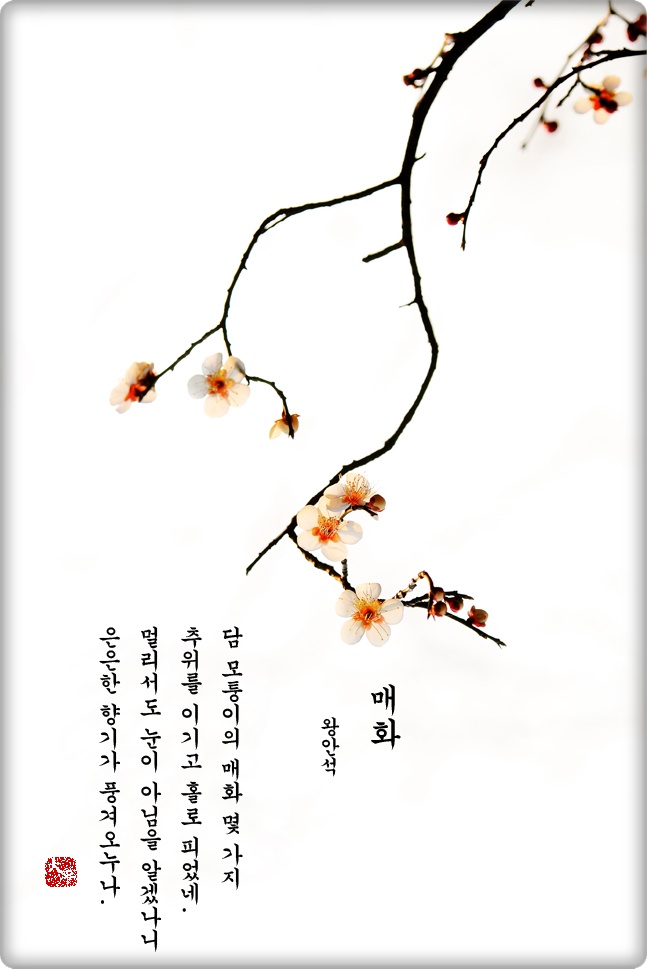 매화
왕안석
담 모퉁이의 매화 몇 가지
추위를 이기고 홀로 피었네.
멀리서도 눈이 아님을 알겠나니
은은한 향기가 풍겨오누나.